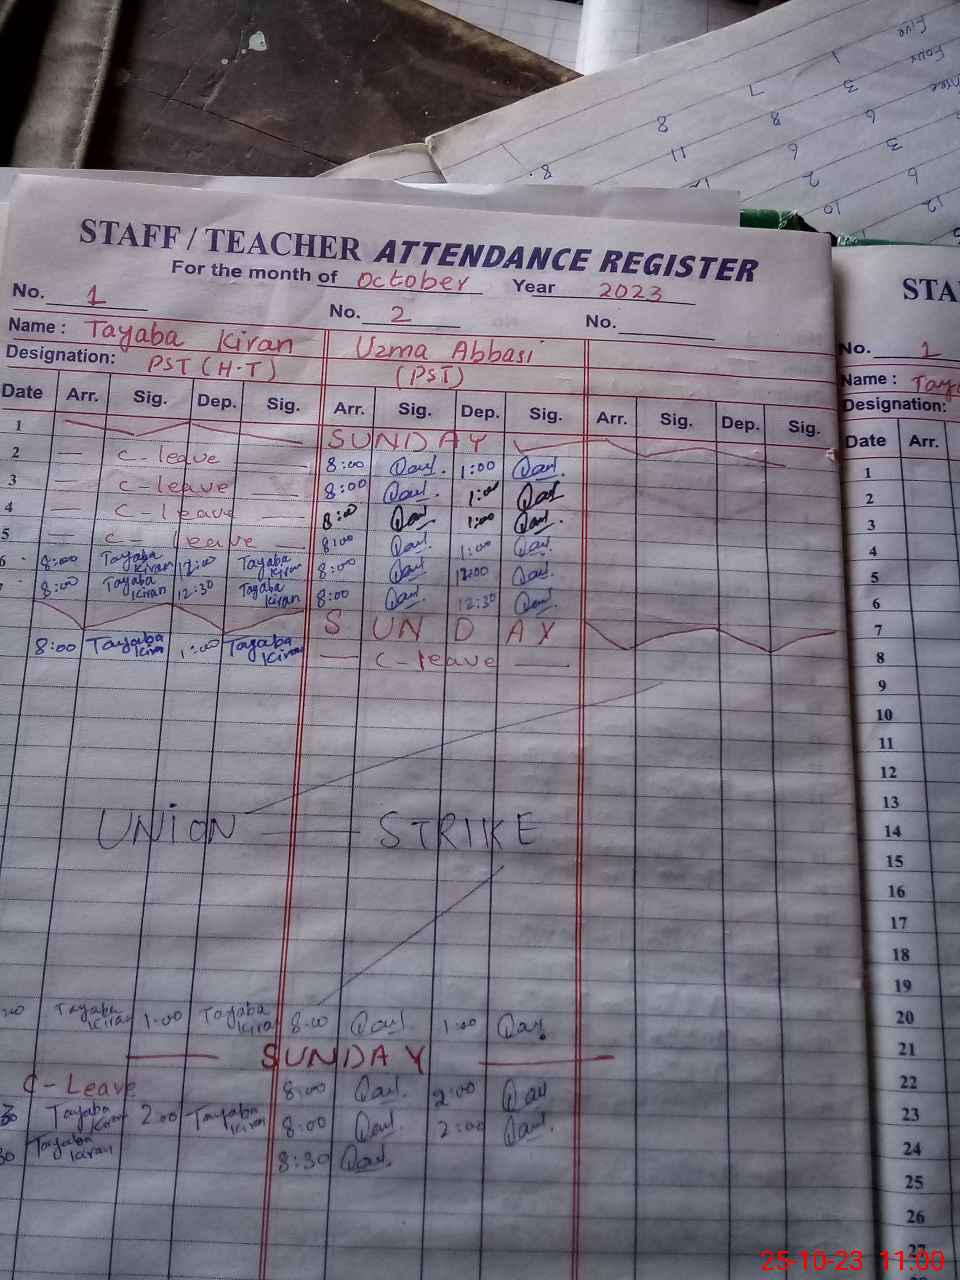 Five
Four
Three
1
3
6
3
6
12
7
8
6
2
10
8
11
12
8.
STAFF / TEACHER ATTENDANCE REGISTER
For the month of October Year 2023
No. 1 No. 2 No.
Name : Tayaba Kiran Uzma Abbasi
Designation: PST (H-T) (PST)
Date Arr. Sig. Dep. Sig. Arr. Sig. Dep. Sig. Arr. Sig. Dep. Sig.
1 SUNDAY
2 — C-leave — 8:00 1:00
3 C-leave — 8:00 1:00
4 — C-leave — 8:00 1:00
5 — C-leave — 8:00 1:00
6 8:00 Tayaba Kiran 12:00 Tayaba Kiran 8:00 12:00
7 8:00 Tayaba Kiran 12:30 Tayaba Kiran 8:00 12:30
SUNDAY
8:00 Tayaba Kiran 1:00 Tayaba Kiran — C-leave —
UNION — STRIKE
Tayaba Kiran 1:00 Tayaba Kiran 8:00 1:00
SUNDAY
C-Leave 8:00 2:00
30 Tayaba Kiran 2:00 Tayaba Kiran 8:00 2:00
30 Tayaba Kiran 8:30
STA
No. 1
Name : Taya
Designation:
Date Arr.
1
2
3
4
5
6
7
8
9
10
11
12
13
14
15
16
17
18
19
20
21
22
23
24
25
26
27
25-10-23 11:00